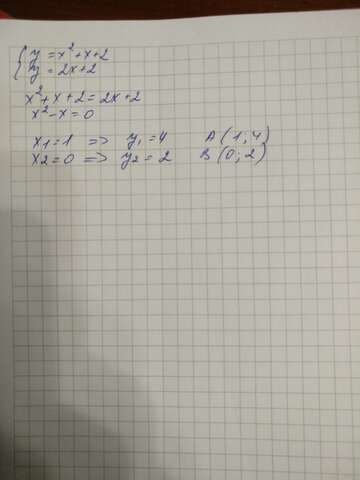 { y = x² + x + 2
y = 2x + 2
x² + x + 2 = 2x + 2
x² - x = 0
x1 = 1 => y1 = 4 A (1; 4)
x2 = 0 => y2 = 2 B (0; 2)